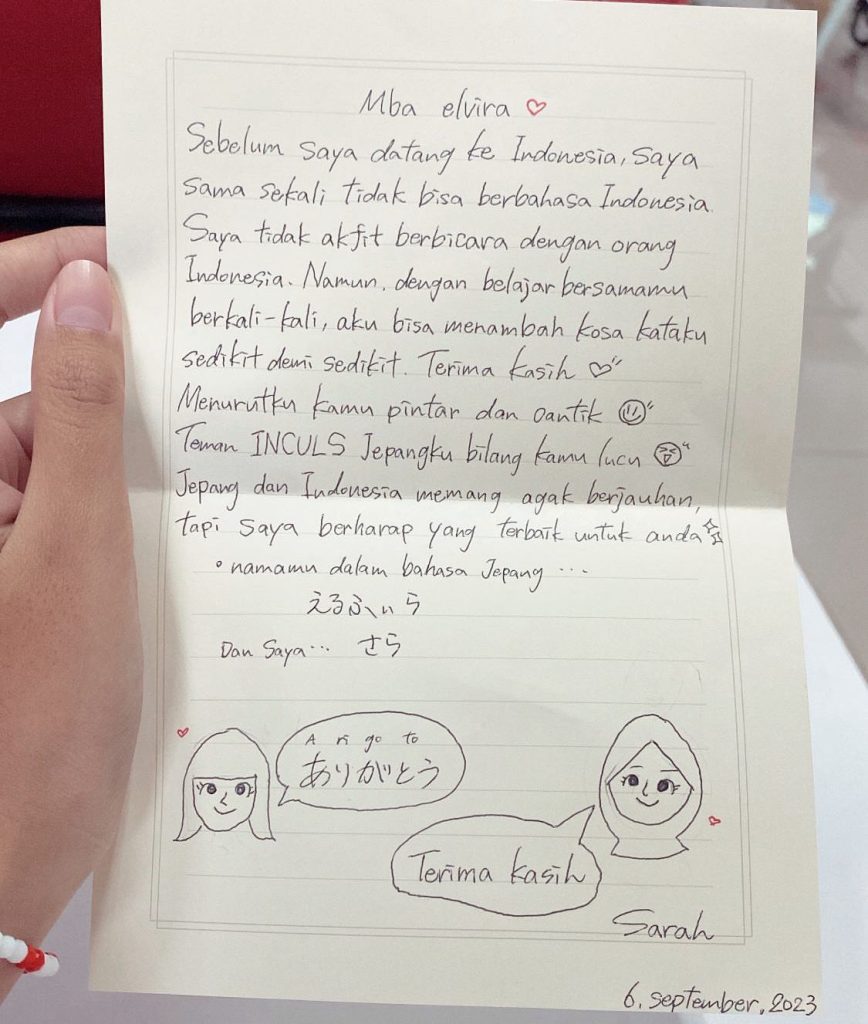 Mba elvira ♡
Sebelum saya datang ke Indonesia, saya
sama sekali tidak bisa berbahasa Indonesia.
Saya tidak akfit berbicara dengan orang
Indonesia. Namun, dengan belajar bersamamu
berkali-kali, aku bisa menambah kosa kataku
sedikit demi sedikit. Terima kasih ♡
Menurutku kamu pintar dan cantik
Teman INCULS Jepangku bilang kamu lucu
Jepang dan Indonesia memang agak berjauhan,
tapi saya berharap yang terbaik untuk anda
• namamu dalam bahasa Jepang ...
えるふぃら
Dan Saya... さら
A ri ga to
ありがとう
Terima kasih
Sarah
6. september, 2023